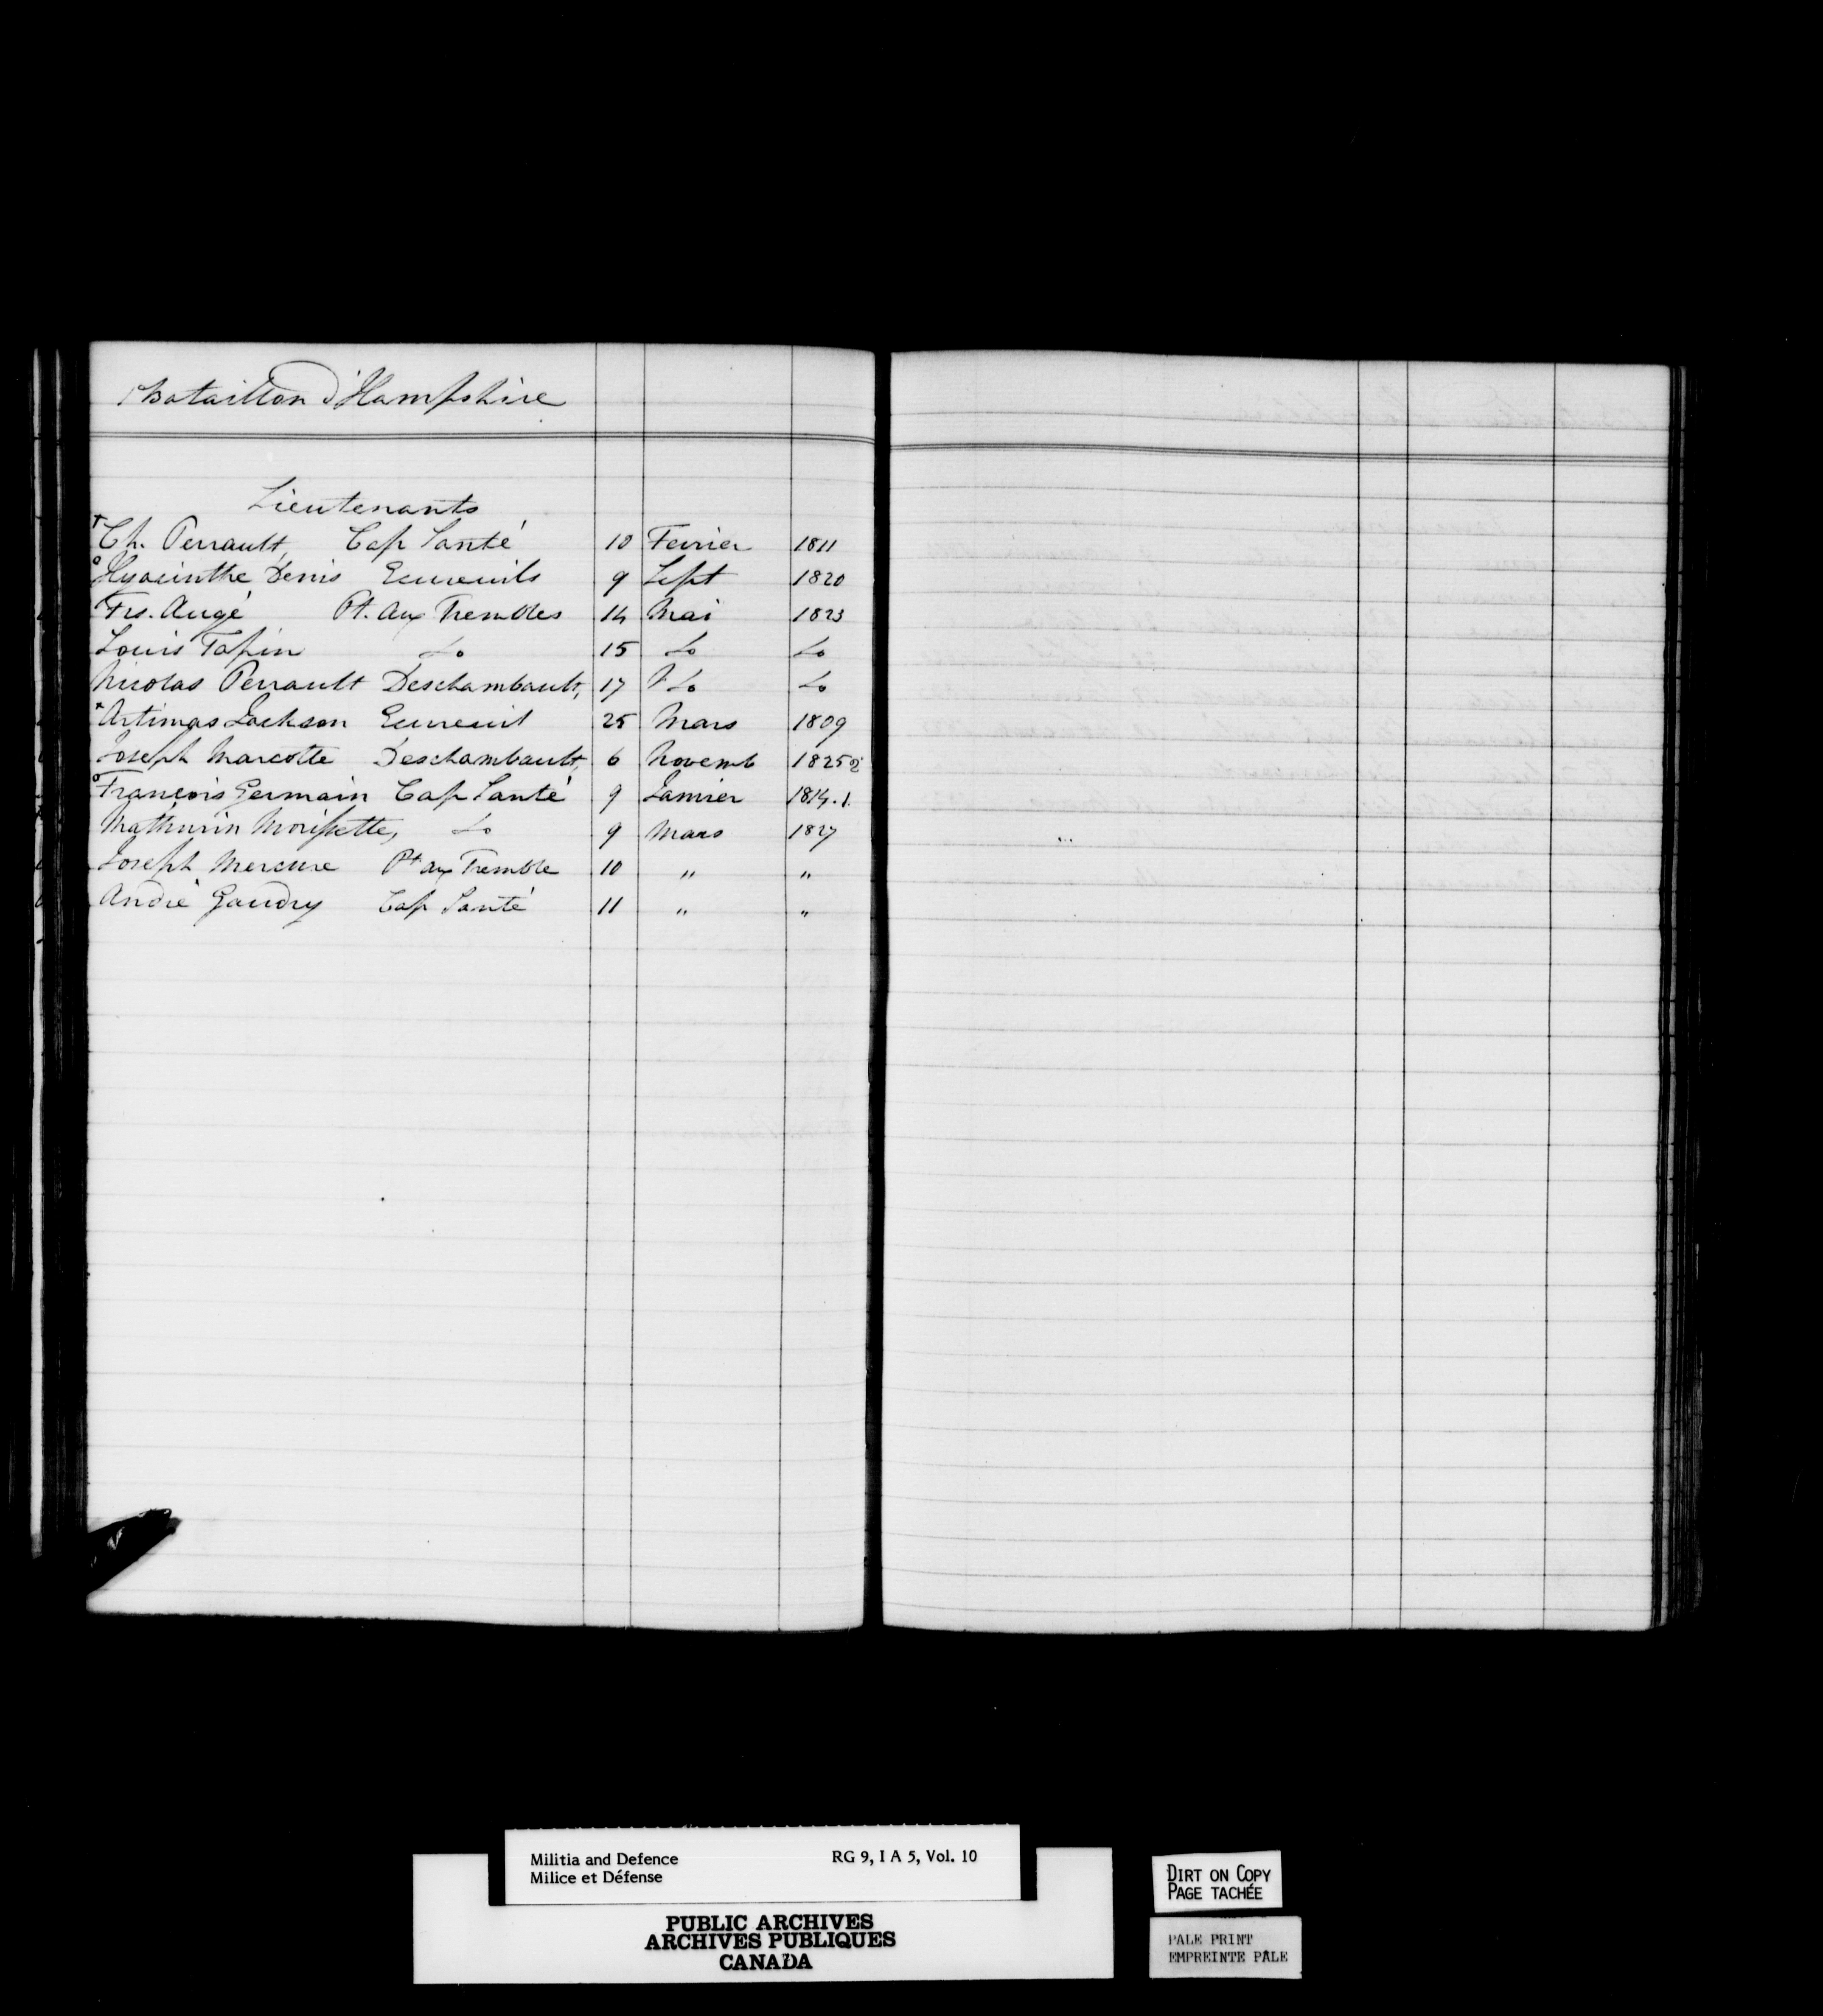 1r Bataillon d'Hampshire
Lieutenants
+ Ch. Perrault, Cap Santé 10 Fevrier 1811
o Hyacinthe Denis Ecureuils 9 Sept 1820
Frs. Augé Pt. aux Trembles 14 Mai 1823
Louis Tapin Do 15 Do Do
Nicolas Perrault Deschambault, 17 Do Do
+ Artimas Jackson Ecureuil 25 Mars 1809
Joseph Marcotte Deschambault, 6 Novemb 1825
o François Germain Cap Santé 9 Janvier 1814.1.
Mathurin Morissette, Do 9 Mars 1827
Joseph Mercure Pt aux Tremble 10 " "
André Gaudry Cap Santé 11 " "
Militia and Defence RG 9, I A 5, Vol. 10
Milice et Défense
PUBLIC ARCHIVES
ARCHIVES PUBLIQUES
CANADA
DIRT ON COPY
PAGE TACHÉE
PALE PRINT
EMPREINTE PÂLE